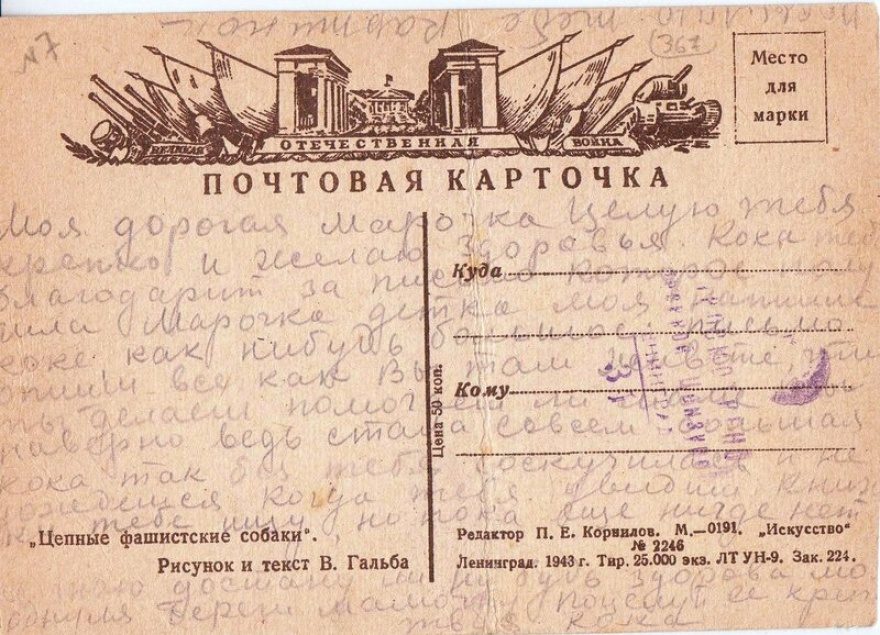 Посылаю тебе картинок
№7
367
Место
для
марки
ВЕЛИКАЯ
ОТЕЧЕСТВЕННАЯ
ВОЙНА
ПОЧТОВАЯ КАРТОЧКА
Моя дорогая Марочка Целую тебя
крепко и желаю здоровья. Кока тебя
благодарит за письмо которое
Марочка детка моя напиши
коке как нибудь большое письмо
все как Вы там живете, что
ты делаешь помогаешь ли маме
наверно ведь стала совсем большая
кока так без тебя соскучилась и не
когда тебя увидим
тебе ищу, но пока еще нигде нет
достану будь здорова
Береги мамочку поцелуй ее
твоя кока
Куда
Кому
Цена 50 коп.
„Цепные фашистские собаки“.
Рисунок и текст В. Гальба
Редактор П. Е. Корнилов. М.—0191. „Искусство“
№ 2246
Ленинград. 1943 г. Тир. 25.000 экз. ЛТ УН-9. Зак. 224.